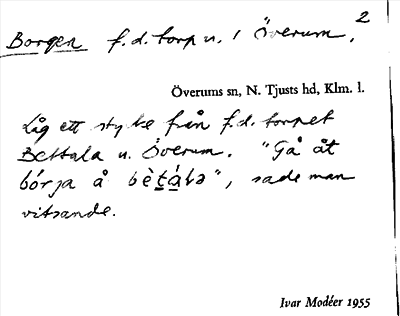 2
Borgen f.d. torp u. i Överum.
Överums sn, N. Tjusts hd, Klm. l.
Låg ett stycke från f.d. torpet
Bettala u. Överum. "Gå åt
bórja å bètála", sade man
vitsande.
Ivar Modéer 1955